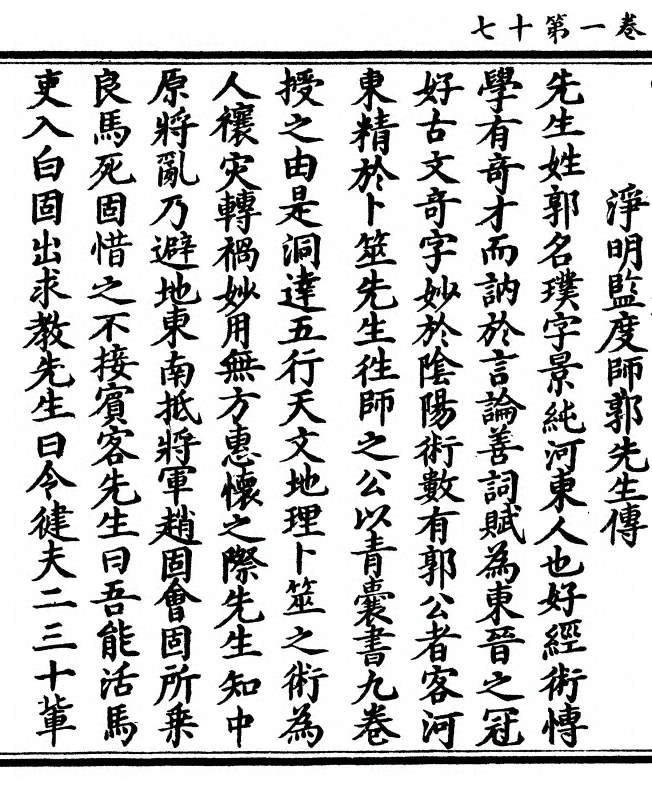 七十第一卷
淨明監度師郭先生傳
先生姓郭名璞字景純河東人也好經術愽
學有竒才而訥於言論善詞賦為東晉之冠
好古文竒字妙於陰陽術數有郭公者客河
東精於卜筮先生徃師之公以青囊書九卷
授之由是洞達五行天文地理卜筮之術為
人禳灾轉禍妙用無方惠懷之際先生知中
原將亂乃避地東南抵將軍趙固會固所乗
良馬死固惜之不接賔客先生曰吾能活馬
吏入白固出求教先生曰令健夫二三十軰